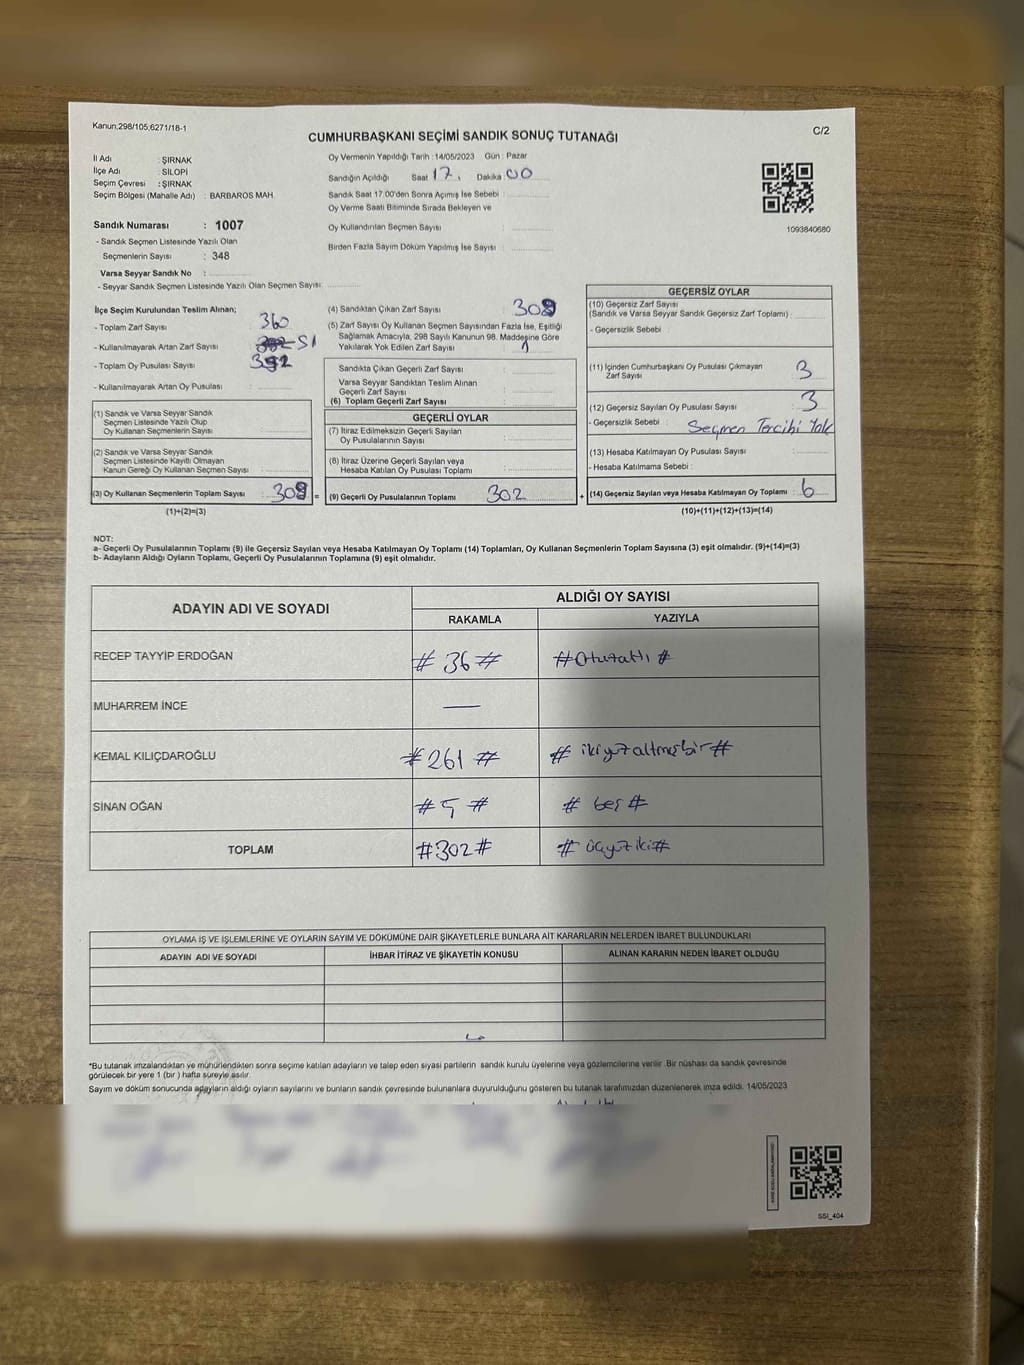 Kanun;298/105,6271/18-1
C/2
CUMHURBAŞKANI SEÇİMİ SANDIK SONUÇ TUTANAĞI
İl Adı : ŞIRNAK
İlçe Adı : SİLOPİ
Seçim Çevresi : ŞIRNAK
Seçim Bölgesi (Mahalle Adı) : BARBAROS MAH.
Oy Vermenin Yapıldığı Tarih : 14/05/2023 Gün : Pazar
Sandığın Açıldığı Saat 17. Dakika : 00
Sandık Saat 17.00'den Sonra Açımış İse Sebebi :
Oy Verme Saati Bitiminde Sırada Bekleyen ve
Oy Kullandırılan Seçmen Sayısı :
Birden Fazla Sayım Döküm Yapılmış İse Sayısı :
1093840680
Sandık Numarası : 1007
- Sandık Seçmen Listesinde Yazılı Olan
Seçmenlerin Sayısı : 348
Varsa Seyyar Sandık No :
- Seyyar Sandık Seçmen Listesinde Yazılı Olan Seçmen Sayısı :
İlçe Seçim Kurulundan Teslim Alınan;
- Toplam Zarf Sayısı : 360
- Kullanılmayarak Artan Zarf Sayısı : 51
- Toplam Oy Pusulası Sayısı :
- Kullanılmayarak Artan Oy Pusulası :
(1) Sandık ve Varsa Seyyar Sandık
Seçmen Listesinde Yazılı Olup
Oy Kullanan Seçmenlerin Sayısı :
(2) Sandık ve Varsa Seyyar Sandık
Seçmen Listesinde Kayıtlı Olmayan
Kanun Gereği Oy Kullanan Seçmen Sayısı :
(3) Oy Kullanan Seçmenlerin Toplam Sayısı : 308 =
(1)+(2)=(3)
(4) Sandıktan Çıkan Zarf Sayısı : 308
(5) Zarf Sayısı Oy Kullanan Seçmen Sayısından Fazla İse, Eşitliği
Sağlamak Amacıyla, 298 Sayılı Kanunun 98. Maddesine Göre
Yakılarak Yok Edilen Zarf Sayısı : 1
Sandıkta Çıkan Geçerli Zarf Sayısı :
Varsa Seyyar Sandıktan Teslim Alınan
Geçerli Zarf Sayısı :
(6) Toplam Geçerli Zarf Sayısı :
GEÇERLİ OYLAR
(7) İtiraz Edilmeksizin Geçerli Sayılan
Oy Pusulalarının Sayısı :
(8) İtiraz Üzerine Geçerli Sayılan veya
Hesaba Katılan Oy Pusulası Toplamı :
(9) Geçerli Oy Pusulalarının Toplamı : 302 +
GEÇERSİZ OYLAR
(10) Geçersiz Zarf Sayısı
(Sandık ve Varsa Seyyar Sandık Geçersiz Zarf Toplamı) :
- Geçersizlik Sebebi :
(11) İçinden Cumhurbaşkanı Oy Pusulası Çıkmayan
Zarf Sayısı : 3
(12) Geçersiz Sayılan Oy Pusulası Sayısı : 3
- Geçersizlik Sebebi : Seçmen Tercihi Yok
(13) Hesaba Katılmayan Oy Pusulası Sayısı :
- Hesaba Katılmama Sebebi :
(14) Geçersiz Sayılan veya Hesaba Katılmayan Oy Toplamı : 6
(10)+(11)+(12)+(13)=(14)
NOT:
a- Geçerli Oy Pusulalarının Toplamı (9) ile Geçersiz Sayılan veya Hesaba Katılmayan Oy Toplamı (14) Toplamları, Oy Kullanan Seçmenlerin Toplam Sayısına (3) eşit olmalıdır. (9)+(14)=(3)
b- Adayların Aldığı Oyların Toplamı, Geçerli Oy Pusulalarının Toplamına (9) eşit olmalıdır.
ADAYIN ADI VE SOYADI
ALDIĞI OY SAYISI
RAKAMLA YAZIYLA
RECEP TAYYİP ERDOĞAN # 36 # # Otuzaltı #
MUHARREM İNCE —
KEMAL KILIÇDAROĞLU # 261 # # ikiyüzaltmışbir #
SİNAN OĞAN # 5 # # beş #
TOPLAM # 302 # # üçyüziki #
OYLAMA İŞ VE İŞLEMLERİNE VE OYLARIN SAYIM VE DÖKÜMÜNE DAİR ŞİKAYETLERLE BUNLARA AİT KARARLARIN NELERDEN İBARET BULUNDUKLARI
ADAYIN ADI VE SOYADI İHBAR İTİRAZ VE ŞİKAYETİN KONUSU ALINAN KARARIN NEDEN İBARET OLDUĞU
*Bu tutanak imzalandıktan ve mühürlendikten sonra seçime katılan adayların ve talep eden siyasi partilerin sandık kurulu üyelerine veya gözlemcilerine verilir. Bir nüshası da sandık çevresinde
görülecek bir yere 1 (bir) hafta süreyle asılır.
Sayım ve döküm sonucunda adayların aldığı oyların sayılarını ve bunların sandık çevresinde bulunanlara duyurulduğunu gösteren bu tutanak tarafımızdan düzenlenerek imza edildi. 14/05/2023
SSI_404